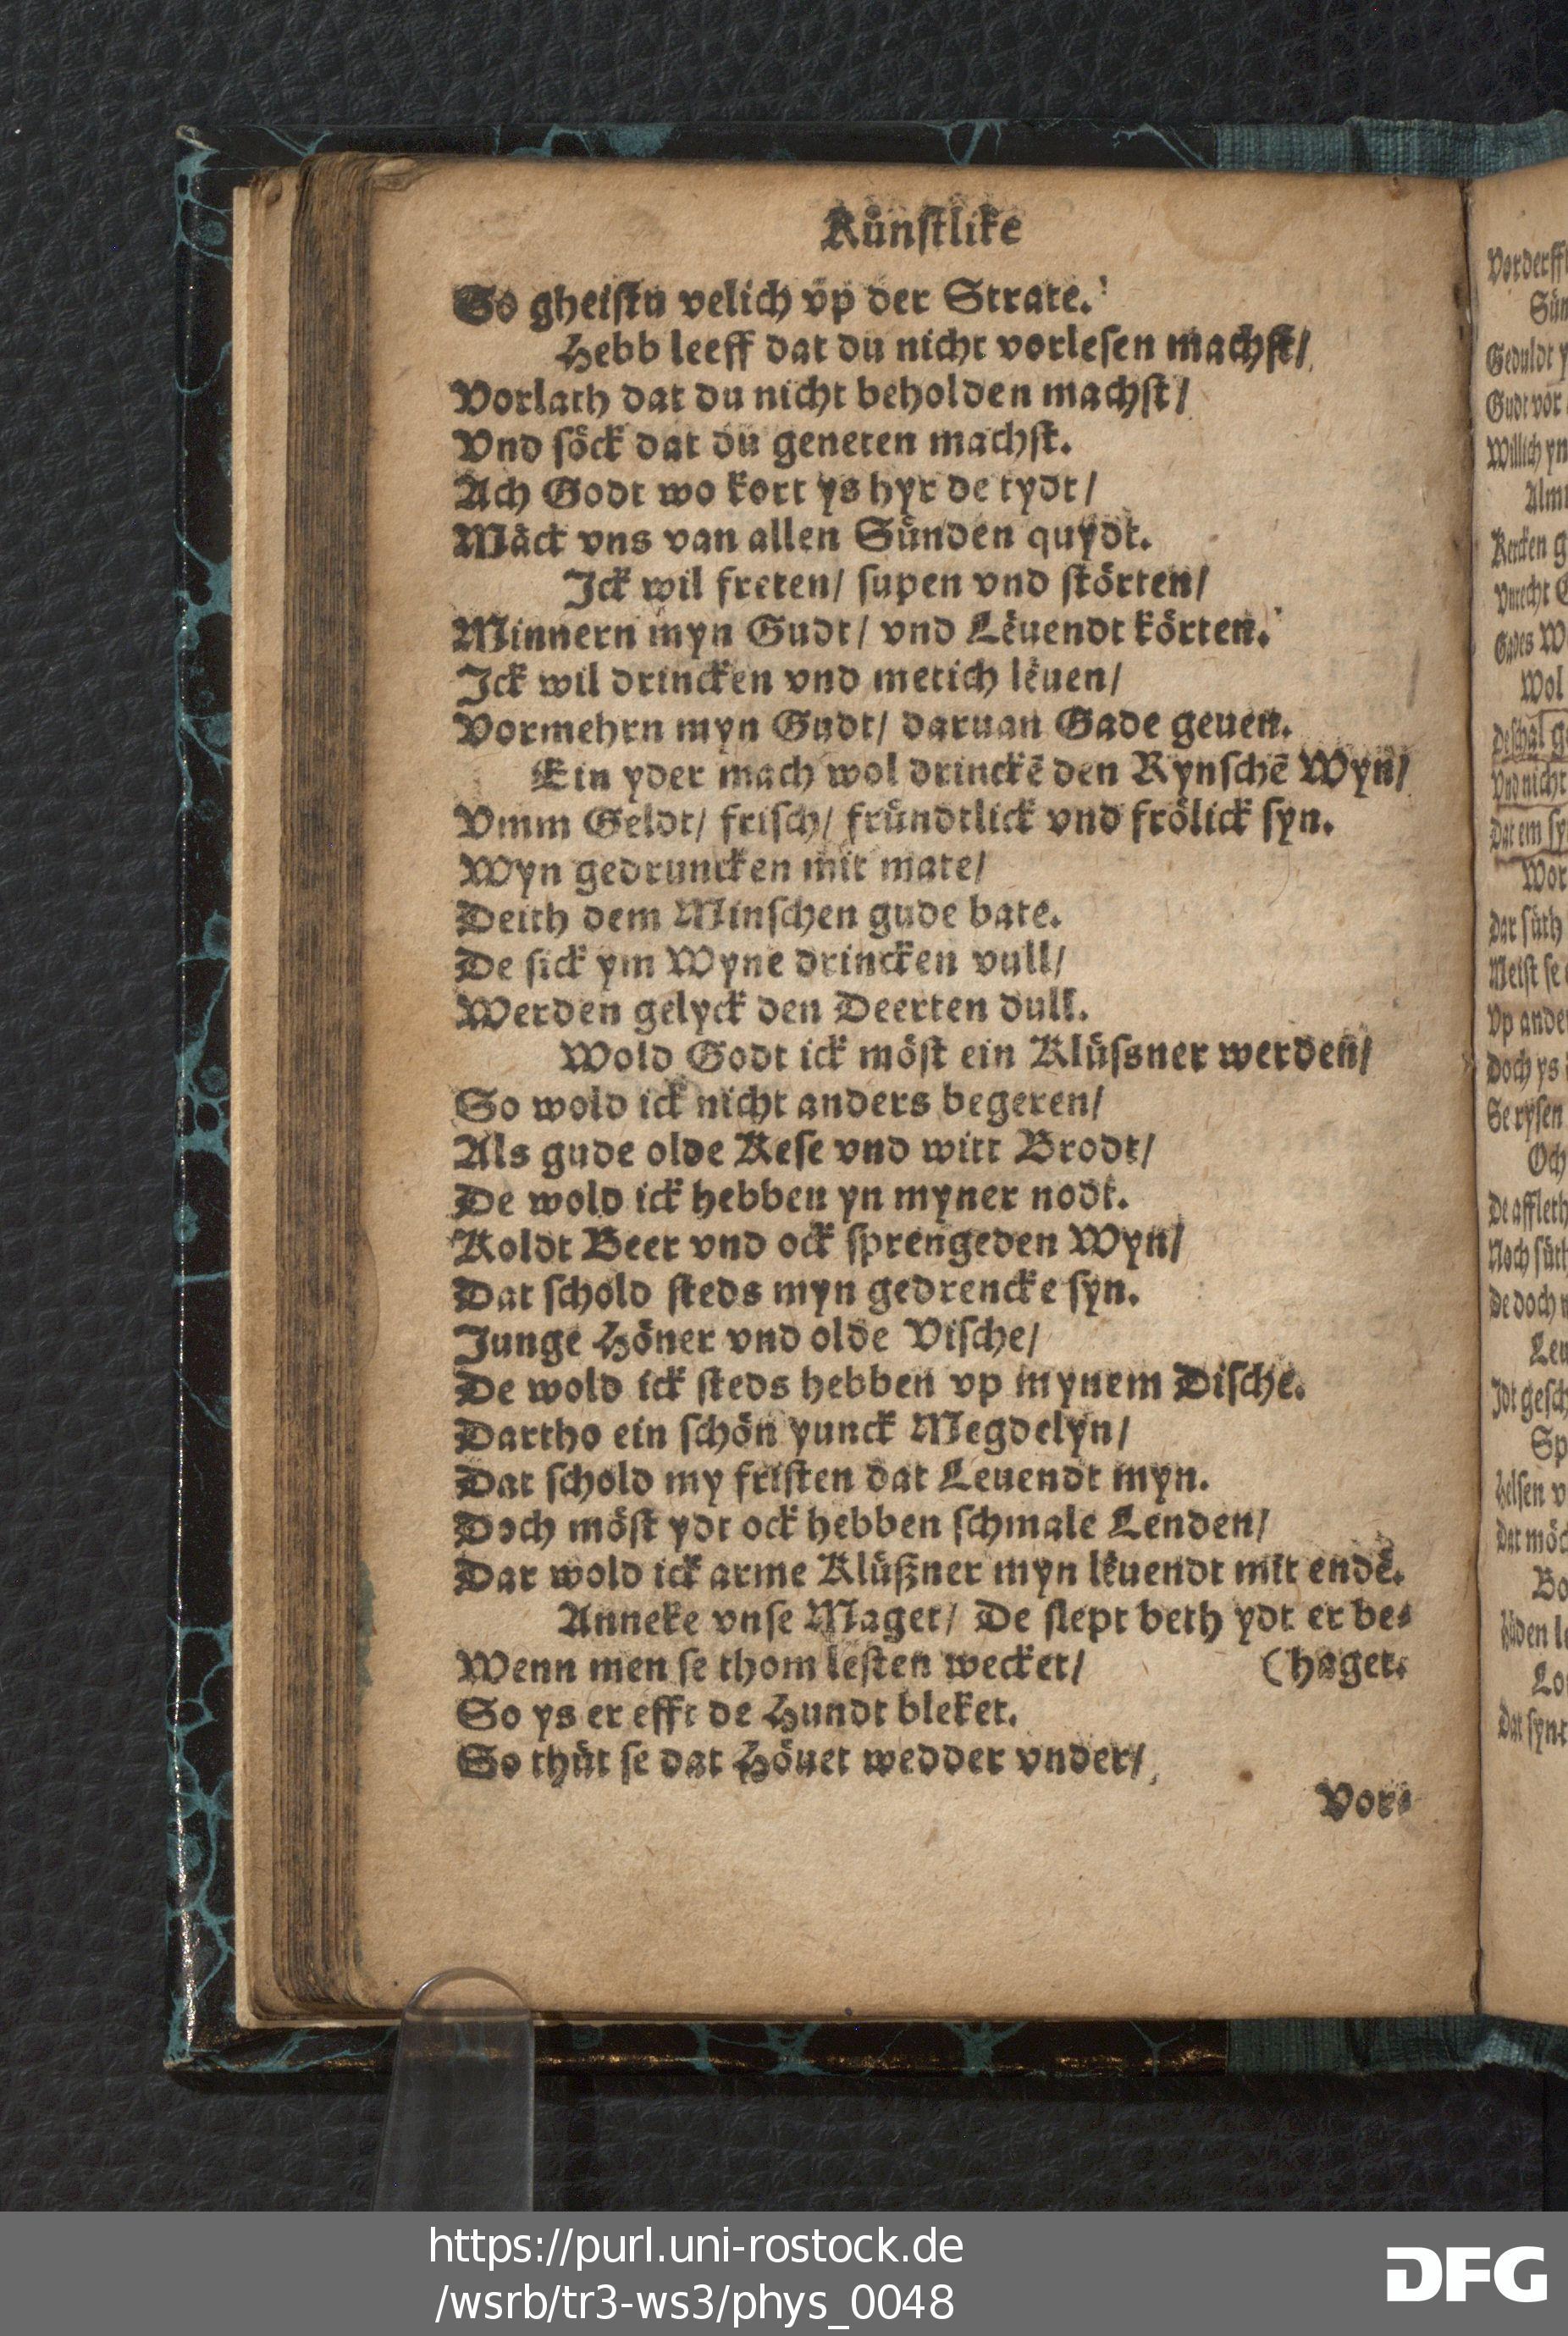 Kůnſtlike
So gheiſtu velich vp der Strate.
Hebb leeff dat du nicht vorleſen machſt/
Vorlath dat du nicht beholden machſt/
Vnd ſöck dat du geneten machſt.
Ach Godt wo kort ys hyr de tydt/
Mäck vns van allen Sůnden quydt.
Ick wil freten/ ſupen vnd ſtörten/
Minnern myn Gudt/ vnd Lěuendt körten.
Ick wil drincken vnd metich lěuen/
Vormehrn myn Gudt/ daruan Gade geuen.
Ein yder mach wol drinckē den Rynſchē Wyn/
Vmm Geldt/ friſch/ frůndtlick vnd frölick ſyn.
Wyn gedruncken mit mate/
Deith dem Minſchen gude bate.
De ſick ym Wyne drincken vull/
Werden gelyck den Deerten dull.
Wold Godt ick möſt ein Klůſsner werden/
So wold ick nicht anders begeren/
Als gude olde Keſe vnd witt Brodt/
De wold ick hebben yn myner nodt.
Koldt Beer vnd ock ſprengeden Wyn/
Dat ſchold ſteds myn gedrencke ſyn.
Junge Höner vnd olde Viſche/
De wold ick ſteds hebben vp mynem Diſche.
Dartho ein ſchön yunck Megdelyn/
Dat ſchold my friſten dat Leuendt myn.
Doch möſt ydt ock hebben ſchmale Lenden/
Dar wold ick arme Klůßner myn lěuendt mit endē.
Anneke vnſe Maget/ De ſlept beth ydt er be⸗
Wenn men ſe thom leſten wecket/ (haget.
So ys er efft de Hundt bleket.
So thůt ſe dat Höuet wedder vnder/
Vor⸗
Vorderff
Geduldt y
Gudt vor
Willich yn
Kercken g
Vnrecht
Gades W
Wol
Deſchal ge
Vnd nicht
Dat em ſy
Wor
Dat ſůth
Meiſt ſe
Vp ander
Doch ys
Se ryſen
Och
De affleth
Noch ſůth
De doch
Leu
Jdt geſch
Sp
Helſen v
Dat möc
Bo
Lo
Dat ſyn
https://purl.uni-rostock.de
/wsrb/tr3-ws3/phys_0048
DFG